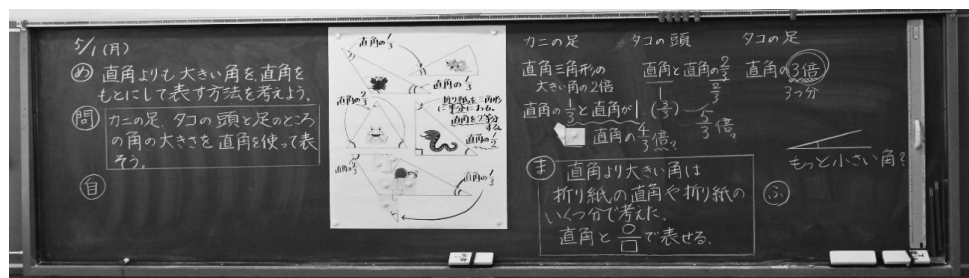 5/1(月)
め 直角よりも大きい角を、直角を
もとにして表す方法を考えよう。
問 カニの足、タコの頭と足のところ
の角の大きさを直角を使って表
そう。
自
直角の1/3
直角の1/3
直角の2/3
折り紙を三角形
に半分におる。
直角を2等分
する。
直角の1/2
直角の2/3
直角の1/3
カニの足
直角三角形の
大きい角の2倍
直角の1/3と直角が1
直角の4/3倍。
タコの頭
直角と直角の2/3
1 2/3
(3/3) 5/3倍。
タコの足
直角の3倍
3つ分
もっと小さい角?
ま 直角より大きい角は
折り紙の直角や折り紙の
いくつ分で考えた。
直角と○/□で表せる。
ふ